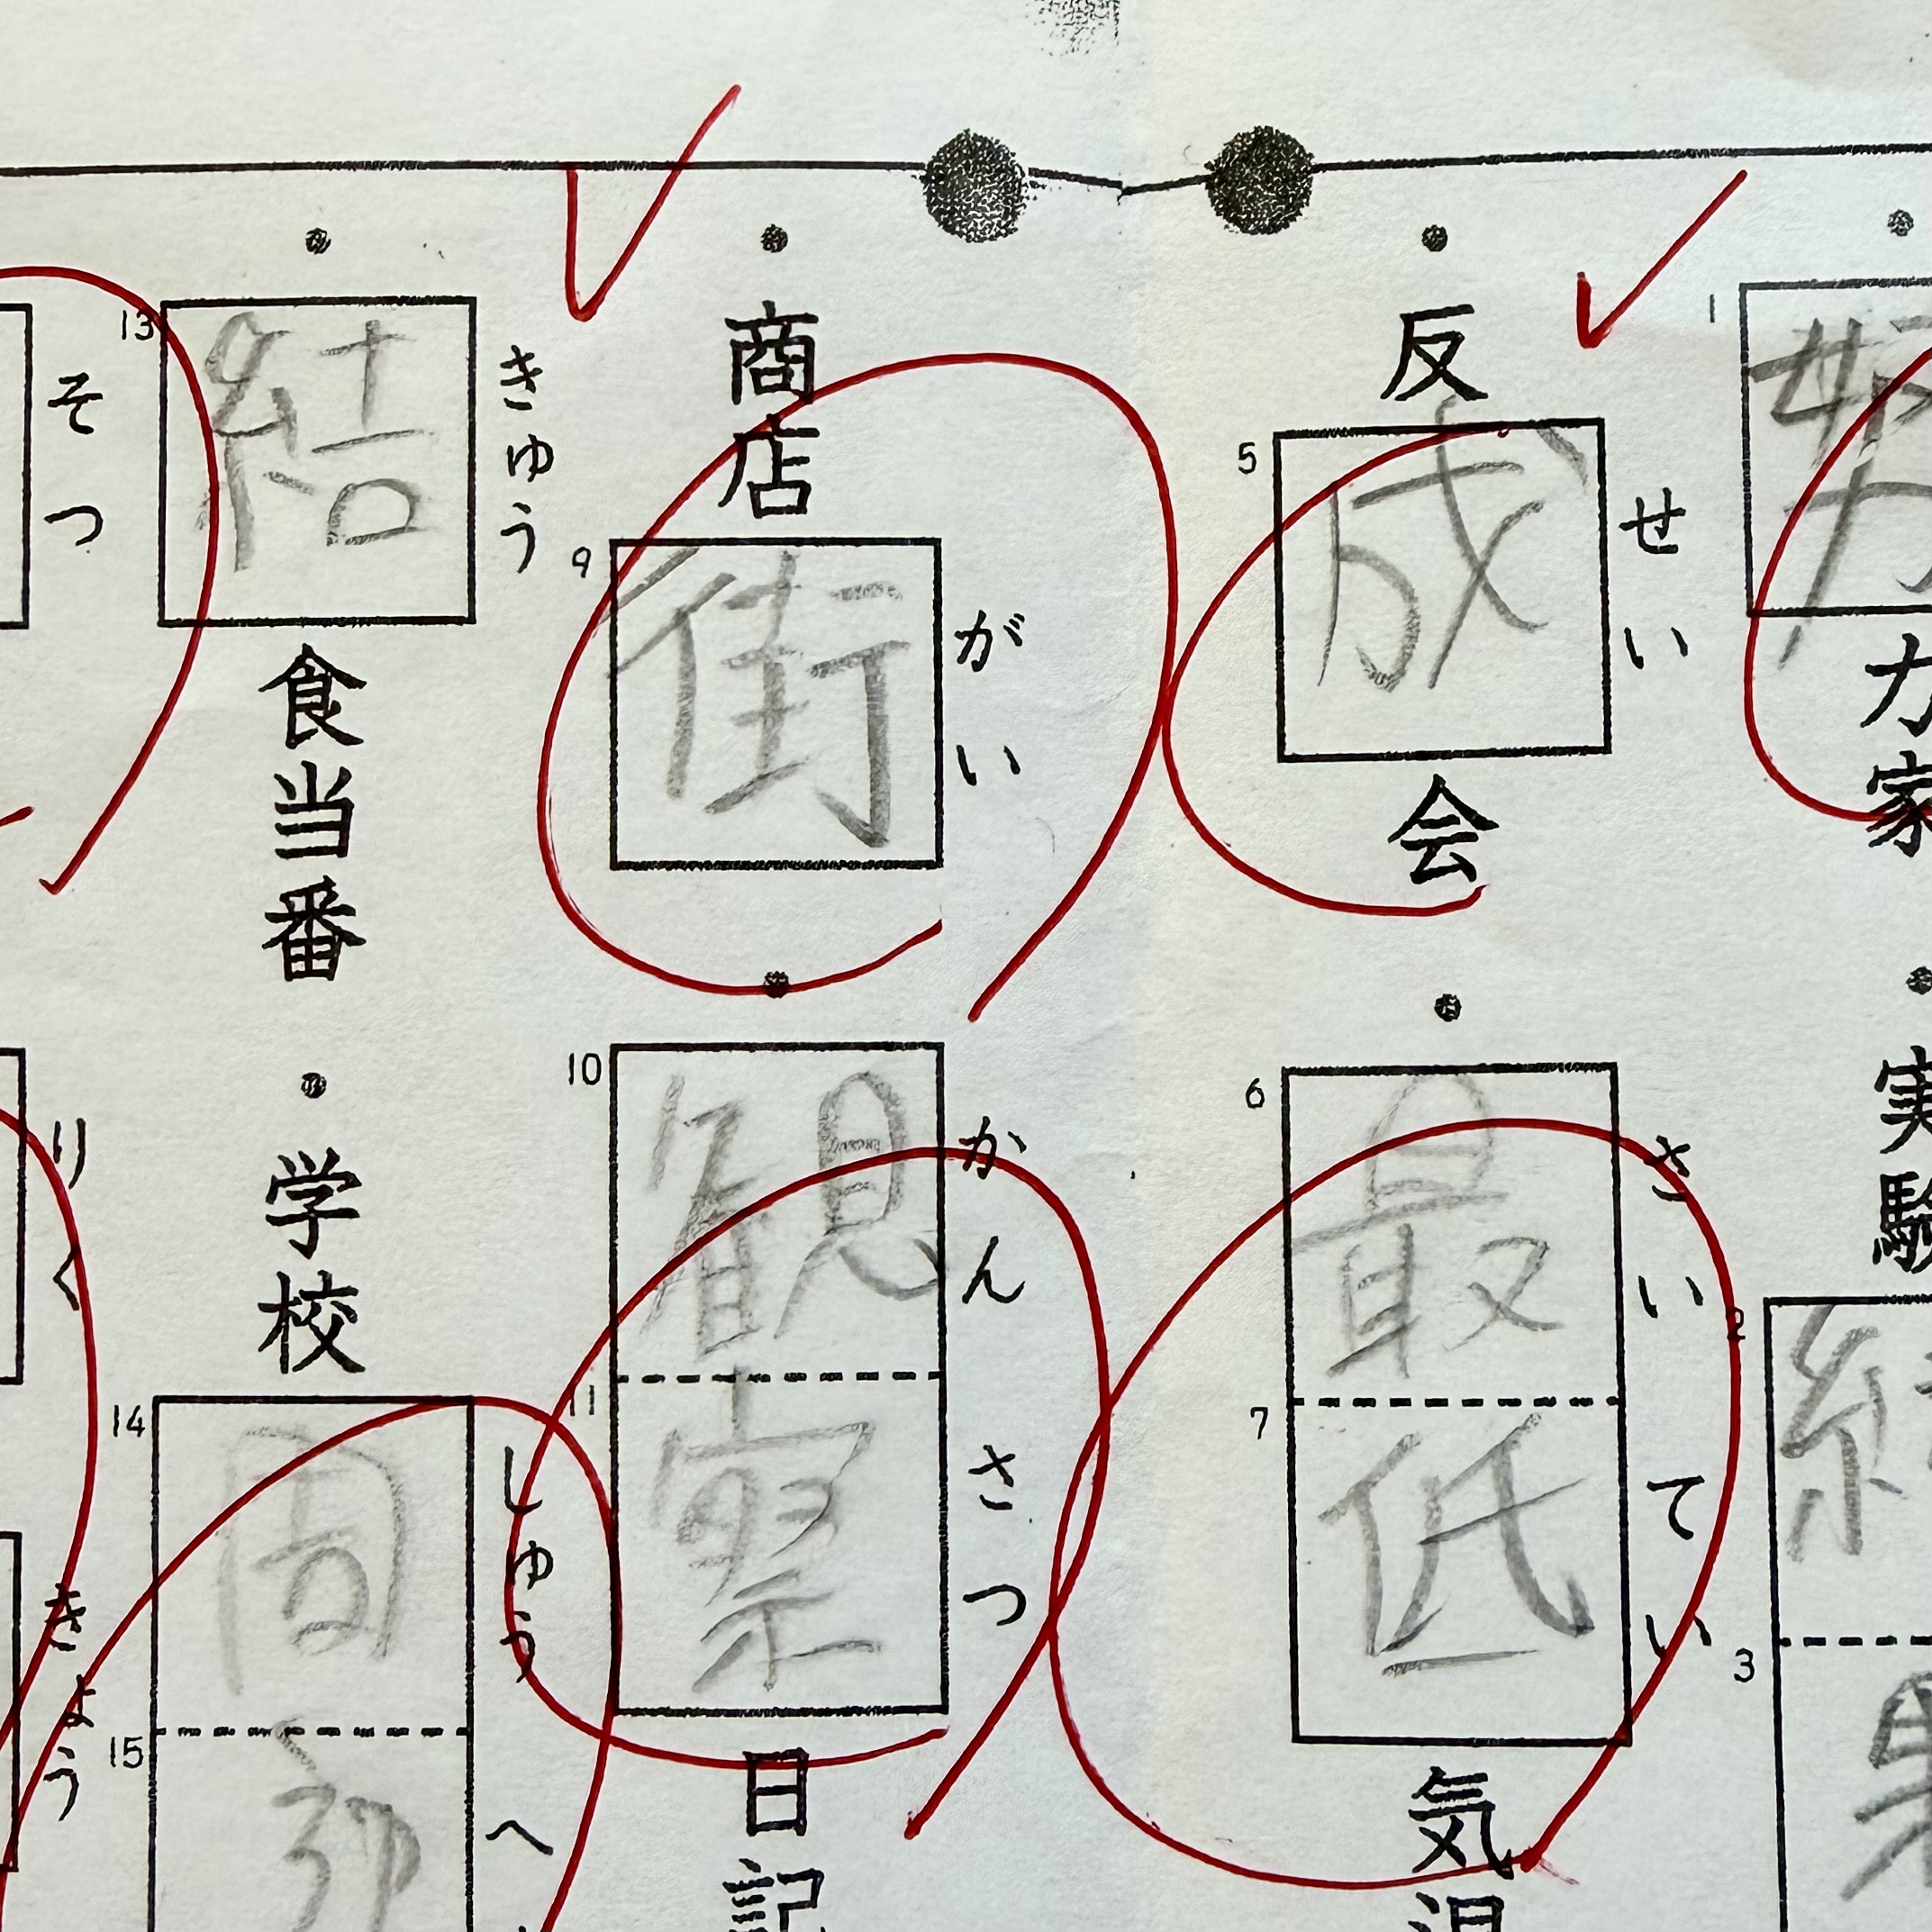 1
努
力
家
実
験
2
結
3
果
反
5
成
せい
会
6
最
さい
7
低
てい
気
温
商
店
9
街
がい
10
観
かん
11
察
さつ
日
記
13
結
きゅう
食
当
番
学
校
14
周
しゅう
15
へ
そつ
りく
きょう